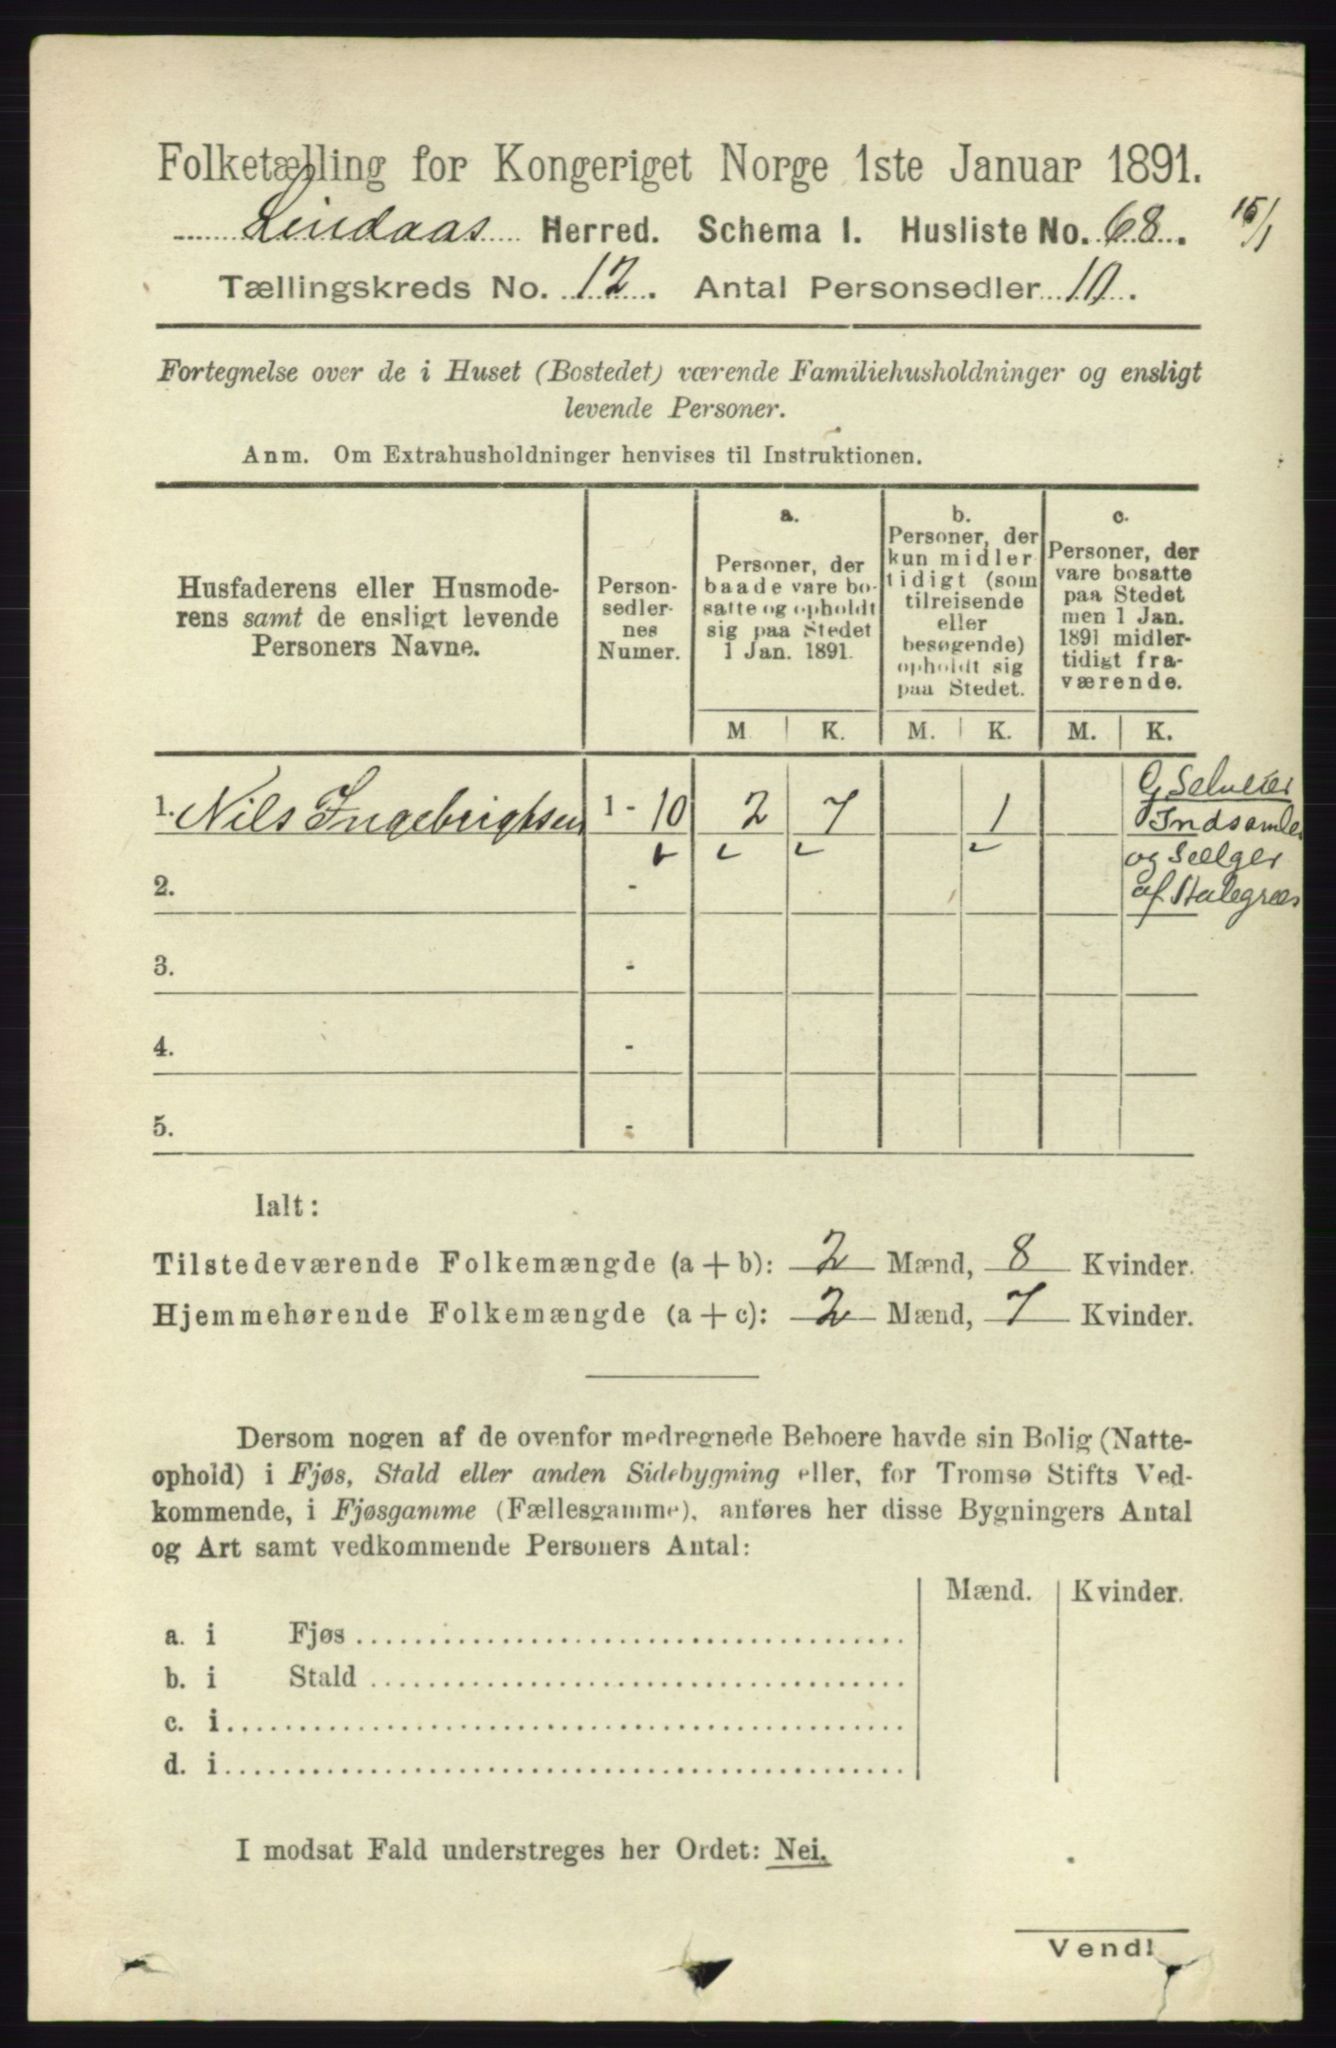 Folketælling for Kongeriget Norge 1ste Januar 1891.
Lindaas Herred. Schema I. Husliste No. 68. 15/1
Tællingskreds No. 12. Antal Personsedler 10.
Fortegnelse over de i Huset (Bostedet) værende Familiehusholdninger og ensligt
levende Personer.
Anm. Om Extrahusholdninger henvises til Instruktionen.
Husfaderens eller Husmode-
rens samt de ensligt levende
Personers Navne.
Person-
sedler-
nes
Numer.
a.
Personer, der
baade vare bo-
satte og opholdt
sig paa Stedet
1 Jan. 1891.
b.
Personer, der
kun midler
tidigt (som
tilreisende
eller
besøgende)
opholdt sig
paa Stedet.
c.
Personer, der
vare bosatte
paa Stedet
men 1 Jan.
1891 midler-
tidigt fra-
værende.
M. K. M. K. M. K.
1. Nils Ingebrigtsen 1 - 10 2 7 1
G Selveier
Indsamler
og Sælger
af Halegræs
2. -
3. -
4. -
5. -
Ialt:
Tilstedeværende Folkemængde (a + b): 2 Mænd, 8 Kvinder.
Hjemmehørende Folkemængde (a + c): 2 Mænd, 7 Kvinder.
Dersom nogen af de ovenfor medregnede Beboere havde sin Bolig (Natte-
ophold) i Fjøs, Stald eller anden Sidebygning eller, for Tromsø Stifts Ved-
kommende, i Fjøsgamme (Fællesgamme), anføres her disse Bygningers Antal
og Art samt vedkommende Personers Antal:
Mænd. Kvinder.
a. i Fjøs
b. i Stald
c. i
d. i
I modsat Fald understreges her Ordet: Nei.
Vend!